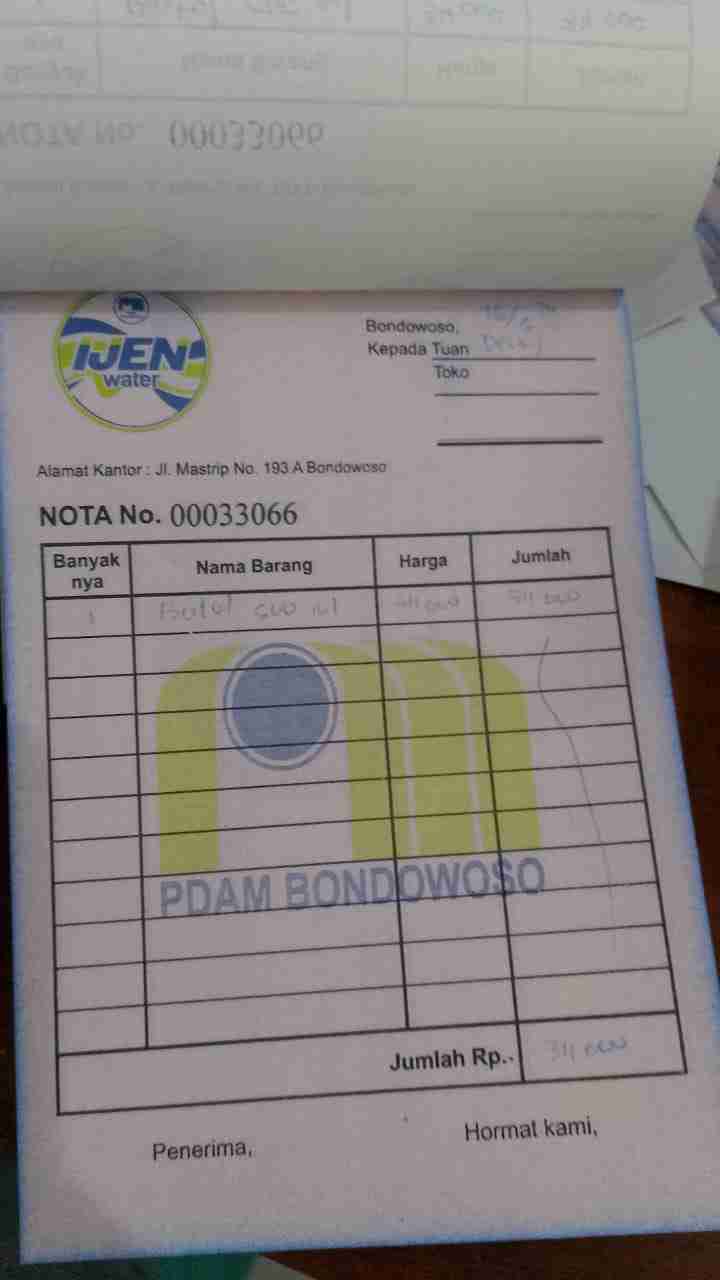 NOTA No. 00033066
IJEN
water
Bondowoso,
Kepada Tuan
Toko
Alamat Kantor : Jl. Mastrip No. 193 A Bondowoso
NOTA No. 00033066
Banyak nya Nama Barang Harga Jumlah
1 Botol ml
PDAM BONDOWOSO
Jumlah Rp.
Penerima, Hormat kami,